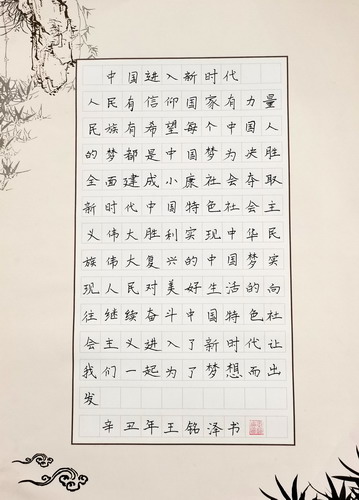 中国进入新时代
人民有信仰国家有力量
民族有希望每个中国人
的梦都是中国梦为决胜
全面建成小康社会夺取
新时代中国特色社会主
义伟大胜利实现中华民
族伟大复兴的中国梦实
现人民对美好生活的向
往继续奋斗中国特色社
会主义进入了新时代让
我们一起为了梦想而出
发
辛丑年王铭泽书